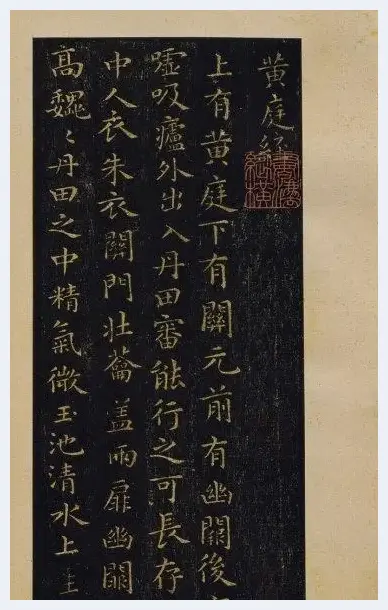 黄庭經
書法
縱橫
上有黄庭下有關元前有幽闕後
嘘吸廬外出入丹田審能行之可長存
中人衣朱衣關門壯蘥盖兩扉幽關
高巍〻丹田之中精氣微玉池清水上